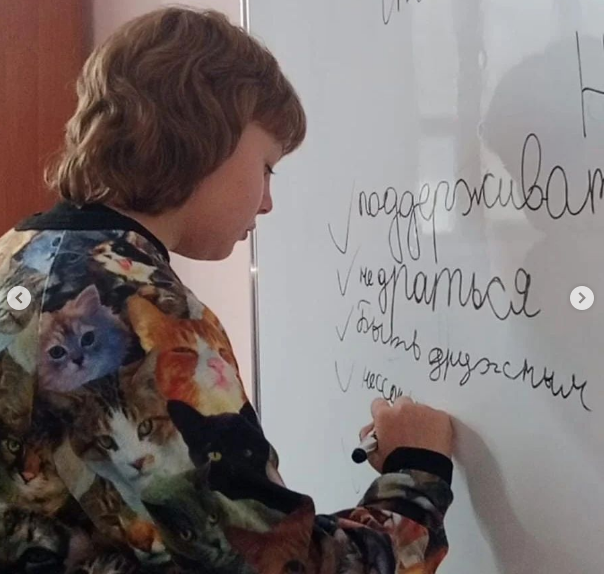 Н
✓ поддерживат
✓ не драться
✓ Быть дружным
✓ нессо